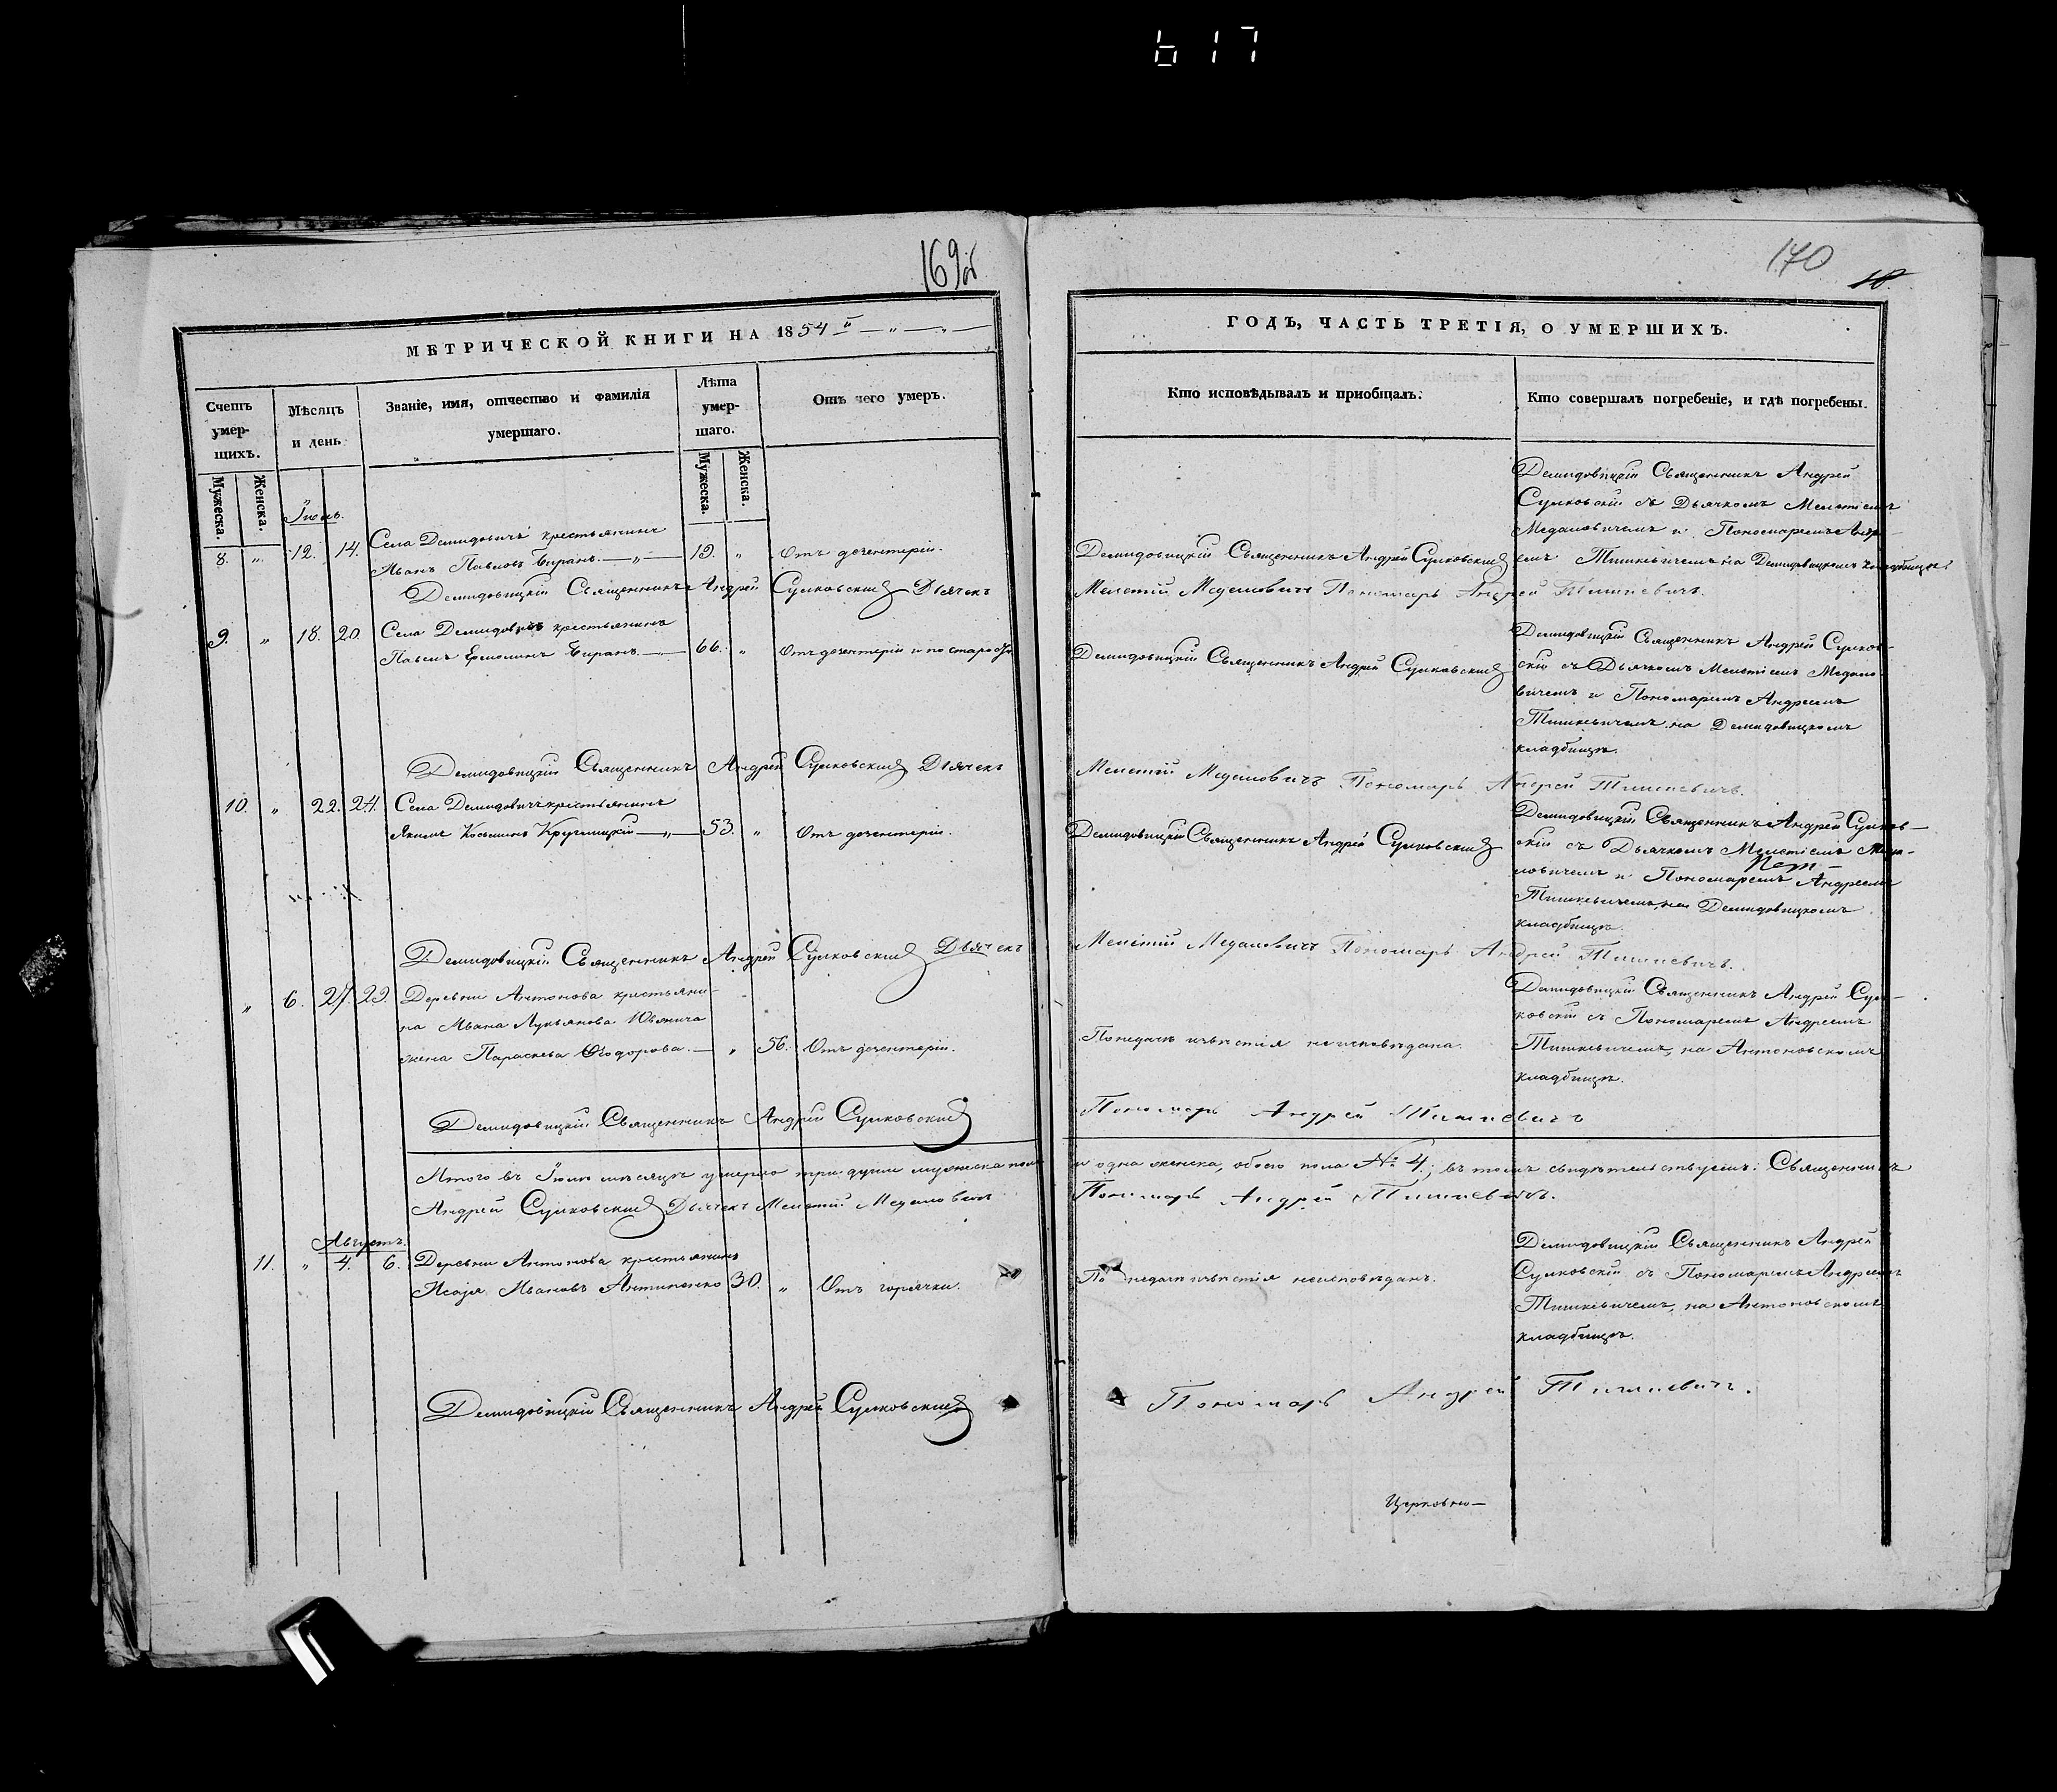 617
169 об
170
18.
МЕТРИЧЕСКОЙ КНИГИ НА 1854 й — „ — „ —
ГОДЪ, ЧАСТЬ ТРЕТІЯ, О УМЕРШИХЪ.
Счетъ умер-щихъ.
Мѣсяцъ и день
Званіе, имя, отчество и фамилія умершаго.
Лѣта умер-шаго.
Отъ чего умеръ.
Кто исповѣдывалъ и пріобщалъ.
Кто совершалъ погребеніе, и гдѣ погребены.
Мужеска.
Женска.
Мужеска.
Женска.
Іюль.
8. „ 12. 14.
Села Демидовичь крестьянинъ
Иванъ Павловъ Биранъ. — „ — 19. „ Отъ дезентеріи.
Демидовицкій Священникъ Андрей Сулковскій
Демидовицкій Священникъ Андрей
Сулковскій съ Дьячкомъ Мелетіемъ
Медаловичемъ и Пономаремъ Андре-
емъ Тишкевичемъ на Демидовицкомъ кладбищѣ.
Демидовицкій Священникъ Андрей Сулковскій Дьячекъ
Мелетій Медаловичъ Пономарь Андрей Тишкевичъ.
9. „ 18. 20.
Села Демидовичь крестьянинъ
Павелъ Ермолинъ Биранъ. — 66. „ Отъ дезентеріи и по старости
Демидовицкій Священникъ Андрей Сулковскій
Демидовицкій Священникъ Андрей Сулков-
скій съ Дьячкомъ Мелетіемъ Медало-
вичемъ и Пономаремъ Андреемъ
Тишкевичемъ на Демидовицкомъ
кладбищѣ.
Демидовицкій Священникъ Андрей Сулковскій Дьячекъ
Мелетій Медаловичъ Пономарь Андрей Тишкевичъ.
10. „ 22. 24.
Села Демидовичь крестьянинъ
Якимъ Косьминъ Круглицкій — „ — 53. „ Отъ дезентеріи.
Демидовицкій Священникъ Андрей Сулковскій
Демидовицкій Священникъ Андрей Сулков-
скій съ Дьячкомъ Мелетіемъ Меда-
ловичемъ и Пономаремъ Андреемъ
Тишкевичемъ, на Демидовицкомъ
кладбищѣ.
Демидовицкій Священникъ Андрей Сулковскій Дьячекъ
Мелетій Медаловичъ Пономарь Андрей Тишкевичъ.
„ 6. 27. 29.
Деревни Антонова крестьяни-
на Ивана Лукьянова Юдянича
жена Параскева Ѳеодорова. — „ 56. Отъ дезентеріи.
Понедачѣ извѣстія неисповѣдана.
Демидовицкій Священникъ Андрей Сул-
ковскій съ Пономаремъ Андреемъ
Тишкевичемъ, на Антоновскомъ
кладбищѣ.
Демидовицкій Священникъ Андрей Сулковскій
Пономарь Андрей Тишкевичъ
Итого въ Іюлѣ мѣсяцѣ умерло три души мужеска пола
и одна женска, обоего пола № 4; въ томъ свидѣтельствуемъ: Священникъ
Андрей Сулковскій Дьячекъ Мелетій Медаловичъ
Пономарь Андрей Тишкевичъ.
Августъ.
11. „ 4. 6.
Деревни Антонова крестьянинъ
Исаія Ивановъ Антипенко 30. „ Отъ горячки.
По недачѣ извѣстія неисповѣданъ.
Демидовицкій Священникъ Андрей
Сулковскій съ Пономаремъ Андреемъ
Тишкевичемъ, на Антоновскомъ
кладбищѣ.
Демидовицкій Священникъ Андрей Сулковскій
Пономарь Андрей Тишкевичъ.
Церковно—